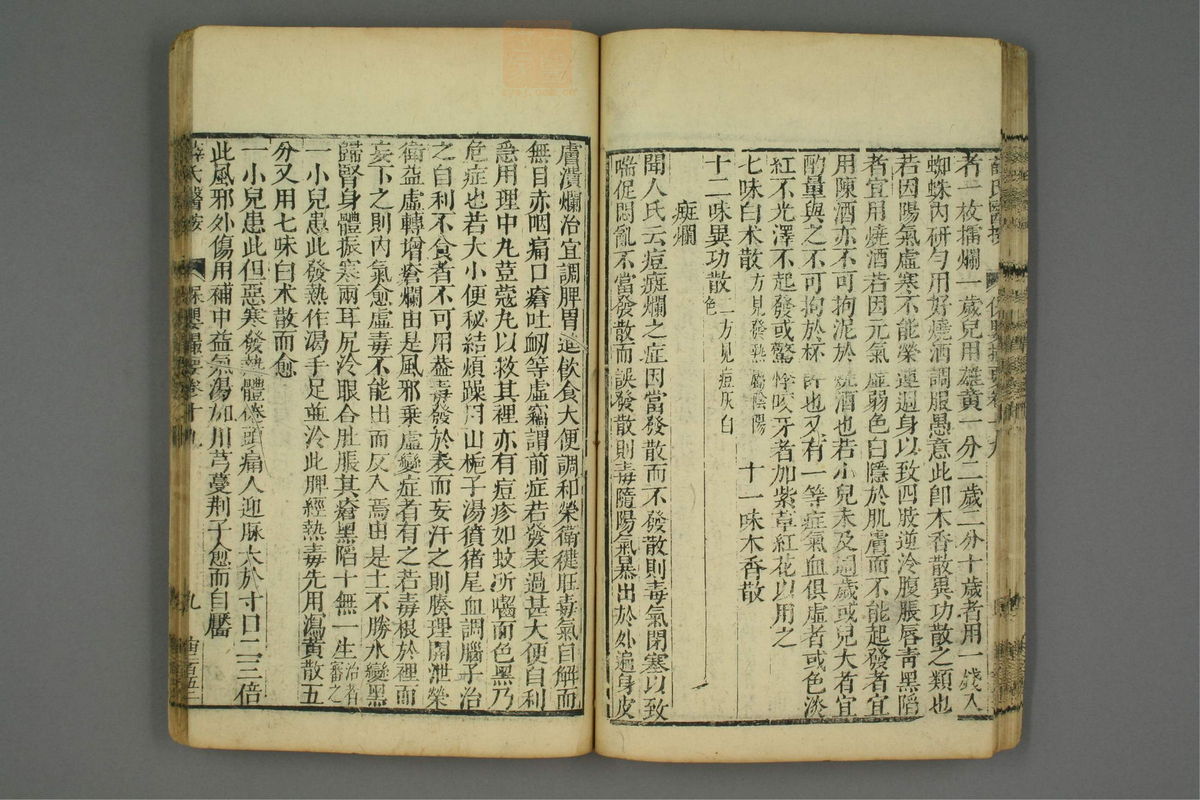 者一枚擂爛一歲兒用雄黃一分二歲二分十歲者用一錢入
蜘蛛內研勻用好燒酒調服愚意此卽木香散異功散之類也
若因陽氣虛寒不能榮運周身以致四肢逆冷腹脹唇青黑陷
者宜用燒酒若因元氣虛弱色白隱於肌膚而不能起發者宜
用陳酒亦不可拘泥於燒酒也若小兒未及周歲或兒大者宜
酌量與之不可拘於杯許也又有一等症氣血俱虛者或色淡
紅不光澤不起發或驚悸咬牙者加紫草紅花以用之
七味白术散方見發熱屬陰陽 十一味木香散
十二味異功散二方見痘灰白色
癍爛
聞人氏云痘癍爛之症因當發散而不發散則毒氣閉塞以致
喘促悶亂不當發散而誤發散則毒隨陽氣暴出於外遍身皮
膚潰爛治宜調脾胃進飲食大便調和榮衛健旺毒氣自解而
無目赤咽痛口瘡吐衂等虛竊謂前症若發表過甚大便自利
急用理中丸荳蔻丸以救其裡亦有痘疹如蚊所嚙面色黑乃
危症也若大小便秘結煩躁用山梔子湯猪尾血調腦子治
之自利不食者不可用蓋毒發於表而妄汗之則腠理開泄榮
衛益虛轉增瘡爛由是風邪乘虛變症者有之若毒根於裡而
妄下之則內氣愈虛毒不能出而反入焉由是土不勝水變黑
歸腎身體振寒兩耳尻冷眼合肚脹其瘡黑陷十無一生治者審之
一小兒患此發熱作渴手足並冷此脾經熱毒先用瀉黃散五
分又用七味白术散而愈
一小兒患此但惡寒發熱體倦頭痛人迎脉大於寸口二三倍
此風邪外傷用補中益氣湯加川芎蔓荆子愈而自靨
薛氏醫按 保嬰撮要卷十九 九